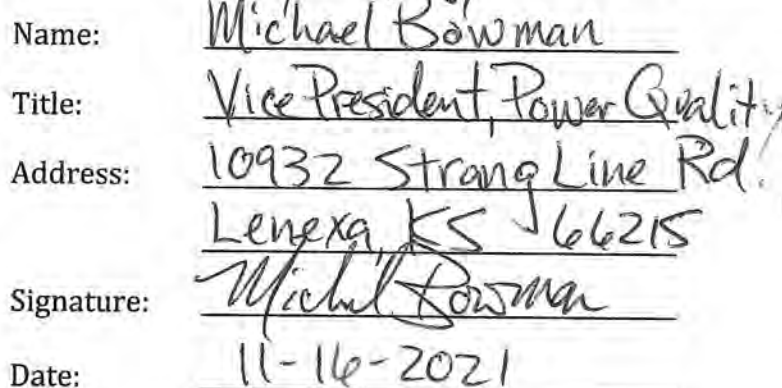 Name: Michael Bowman
Title: Vice President, Power Quality
Address: 10932 Strang Line Rd.
Lenexa, KS 66215
Signature: Michael Bowman
Date: 11-16-2021